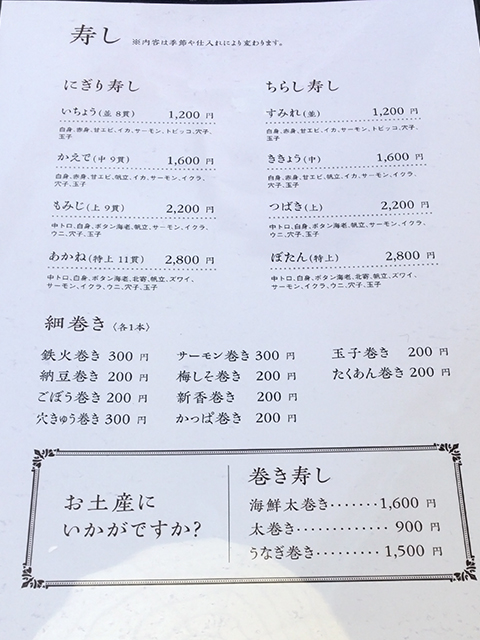 寿し ※内容は季節や仕入れにより変わります。
にぎり寿し
いちょう(並 8貫) 1,200 円
白身、赤身、甘エビ、イカ、サーモン、トビッコ、穴子、
玉子
かえで(中 9貫) 1,600 円
白身、赤身、甘エビ、帆立、イカ、サーモン、イクラ、
穴子、玉子
もみじ(上 9貫) 2,200 円
中トロ、白身、ボタン海老、帆立、サーモン、イクラ、
ウニ、穴子、玉子
あかね(特上 11貫) 2,800 円
中トロ、白身、ボタン海老、北寄、帆立、ズワイ、
サーモン、イクラ、ウニ、穴子、玉子
ちらし寿し
すみれ(並) 1,200 円
白身、赤身、甘エビ、イカ、サーモン、トビッコ、穴子、
玉子
ききょう(中) 1,600 円
白身、赤身、甘エビ、帆立、イカ、サーモン、イクラ、
穴子、玉子
つばき(上) 2,200 円
中トロ、白身、ボタン海老、帆立、サーモン、イクラ、
ウニ、穴子、玉子
ぼたん(特上) 2,800 円
中トロ、白身、ボタン海老、北寄、帆立、ズワイ、
サーモン、イクラ、ウニ、穴子、玉子
細巻き〈各1本〉
鉄火巻き 300 円 サーモン巻き 300 円 玉子巻き 200 円
納豆巻き 200 円 梅しそ巻き 200 円 たくあん巻き 200 円
ごぼう巻き 200 円 新香巻き 200 円
穴きゅう巻き 300 円 かっぱ巻き 200 円
お土産に
いかがですか?
巻き寿し
海鮮太巻き・・・・・・・1,600 円
太巻き・・・・・・・・・・・・・ 900 円
うなぎ巻き・・・・・・・・・・ 1,500 円